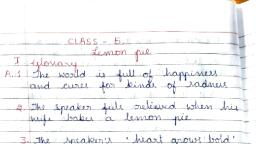 CLASS - 5.
Lemon pie
I Glossary
A.1 The world is full of happiness
and cures for kinds of sadness
2. The speaker feels relieved when his
wife bakes a lemon pie
3. The speaker's 'heart grows bold'